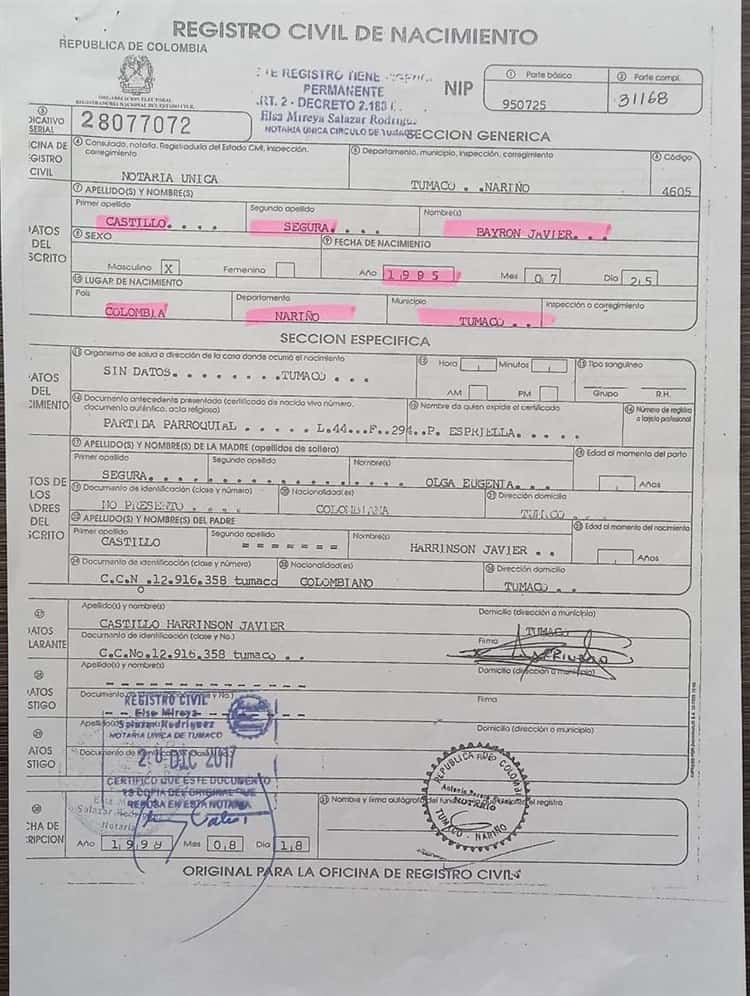 REGISTRO CIVIL DE NACIMIENTO
REPUBLICA DE COLOMBIA
ORGANIZACION ELECTORAL
REGISTRADURIA NACIONAL DEL ESTADO CIVIL
REGISTRO TIENE
PERMANENTE
ART. 2 - DECRETO 2.188
Elsa Mireya Salazar Rodrigu
NOTARIA UNICA CIRCULO DE TUMACO
NIP
① Parte básico
950725
② Parte compl.
31168
③ DICATIVO SERIAL
28077072
SECCION GENERICA
CINA DE
GISTRO
CIVIL
④ Consulado, notaría, Registraduría del Estado Civil, inspección, corregimiento
NOTARIA UNICA
⑤ Departamento, municipio, inspección, corregimiento
TUMACO . .NARIÑO
⑥ Código
4605
DATOS
DEL
SCRITO
⑦ APELLIDO(S) Y NOMBRE(S)
Primer apellido
CASTILLO. . . .
Segundo apellido
SEGURA. . . .
Nombre(s)
BAYRON JAVIER. . .
⑧ SEXO
Masculino X
Femenino
⑨ FECHA DE NACIMIENTO
Año 1.9 8 5
Mes 0.7
Día 2.5
⑩ LUGAR DE NACIMIENTO
País
COLOMBIA
Departamento
NARIÑO
Municipio
TUMACO . .
Inspección o corregimiento
SECCION ESPECIFICA
DATOS
DEL
CIMIENTO
⑪ Organismo de salud o dirección de la casa donde ocurrió el nacimiento
SIN DATOS. . . . . . . .TUMACO . . .
⑫ Hora
Minutos
AM
PM
⑬ Tipo sanguíneo
Grupo
R.H.
⑭ Documento antecedente presentado (certificado de nacido vivo número, documento auténtico, acta religiosa)
PARTIDA PARROQUIAL . . . . . L.44...F..294..P. ESPRIELLA. . . .
⑮ Nombre de quien expide el certificado
⑯ Número de registro o tarjeta profesional
TOS DE
LOS
ADRES
DEL
SCRITO
⑰ APELLIDO(S) Y NOMBRE(S) DE LA MADRE (apellidos de soltera)
Primer apellido
SEGURA. . . .
Segundo apellido
Nombre(s)
OLGA EUGENIA. . .
⑱ Edad al momento del parto
Años
⑲ Documento de identificación (clase y número)
NO PRESENTO . . . .
⑳ Nacionalidad(es)
COLOMBIANA
㉑ Dirección domicilio
TUMACO . .
㉒ APELLIDO(S) Y NOMBRE(S) DEL PADRE
Primer apellido
CASTILLO
Segundo apellido
= = = = = = =
Nombre(s)
HARRINSON JAVIER . .
㉓ Edad al momento del nacimiento
Años
㉔ Documento de identificación (clase y número)
C.C.No.12.916.358 tumaco
㉕ Nacionalidad(es)
COLOMBIANO
㉖ Dirección domicilio
TUMACO . .
㉗
DATOS
LARANTE
Apellido(s) y nombre(s)
CASTILLO HARRINSON JAVIER
Domicilio (dirección o municipio)
TUMACO
Documento de identificación (clase y No.)
C.C.No.12.916.358 tumaco . .
Firma
㉘
DATOS
STIGO
Apellido(s) y nombre(s)
Domicilio (dirección o municipio)
Documento de identificación (clase y No.)
Firma
㉙
DATOS
STIGO
Apellido(s) y nombre(s)
Domicilio (dirección o municipio)
Documento de
REGISTRO CIVIL
Elsa Mireya
Salazar Rodriguez
NOTARIA UNICA DE TUMACO
DIC 2017
CERTIFICO QUE ESTE DOCUMENTO
ES COPIA DEL ORIGINAL QUE
REPOSA EN ESTA NOTARIA
REPUBLICA DE COLOMBIA
NOTARIO
TUMACO - NARIÑO
㉚
CHA DE
RIPCION
Año 1.9 9 8
Mes 0.8
Día 1.8
㉛ Nombre y firma autógrafa del registro
ORIGINAL PARA LA OFICINA DE REGISTRO CIVIL